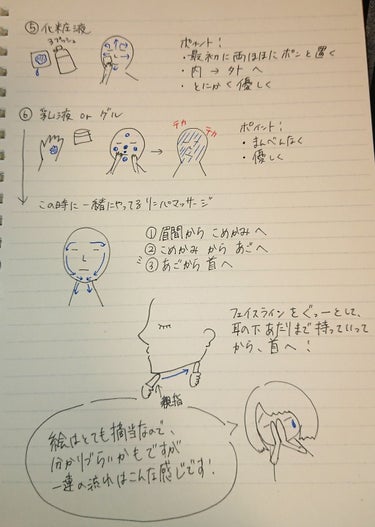 ⑤ 化粧液
3プッシュ
ポイント!
・最初に両ほほにポンと置く
・内 → 外 へ
・とにかく優しく
⑥ 乳液 or ゲル
テカ
テカ
ポイント!
・まんべんなく
・優しく
この時に一緒にやってるリンパマッサージ
① 眉間から こめかみへ
② こめかみ から あごへ
③ あごから 首へ
フェイスラインをぐっーとして、
耳の下あたりまで持っていって
から、首へ!
親指
絵はとても摘当なので、
分かりづらいかもですが
一連の流れはこんな感じです!